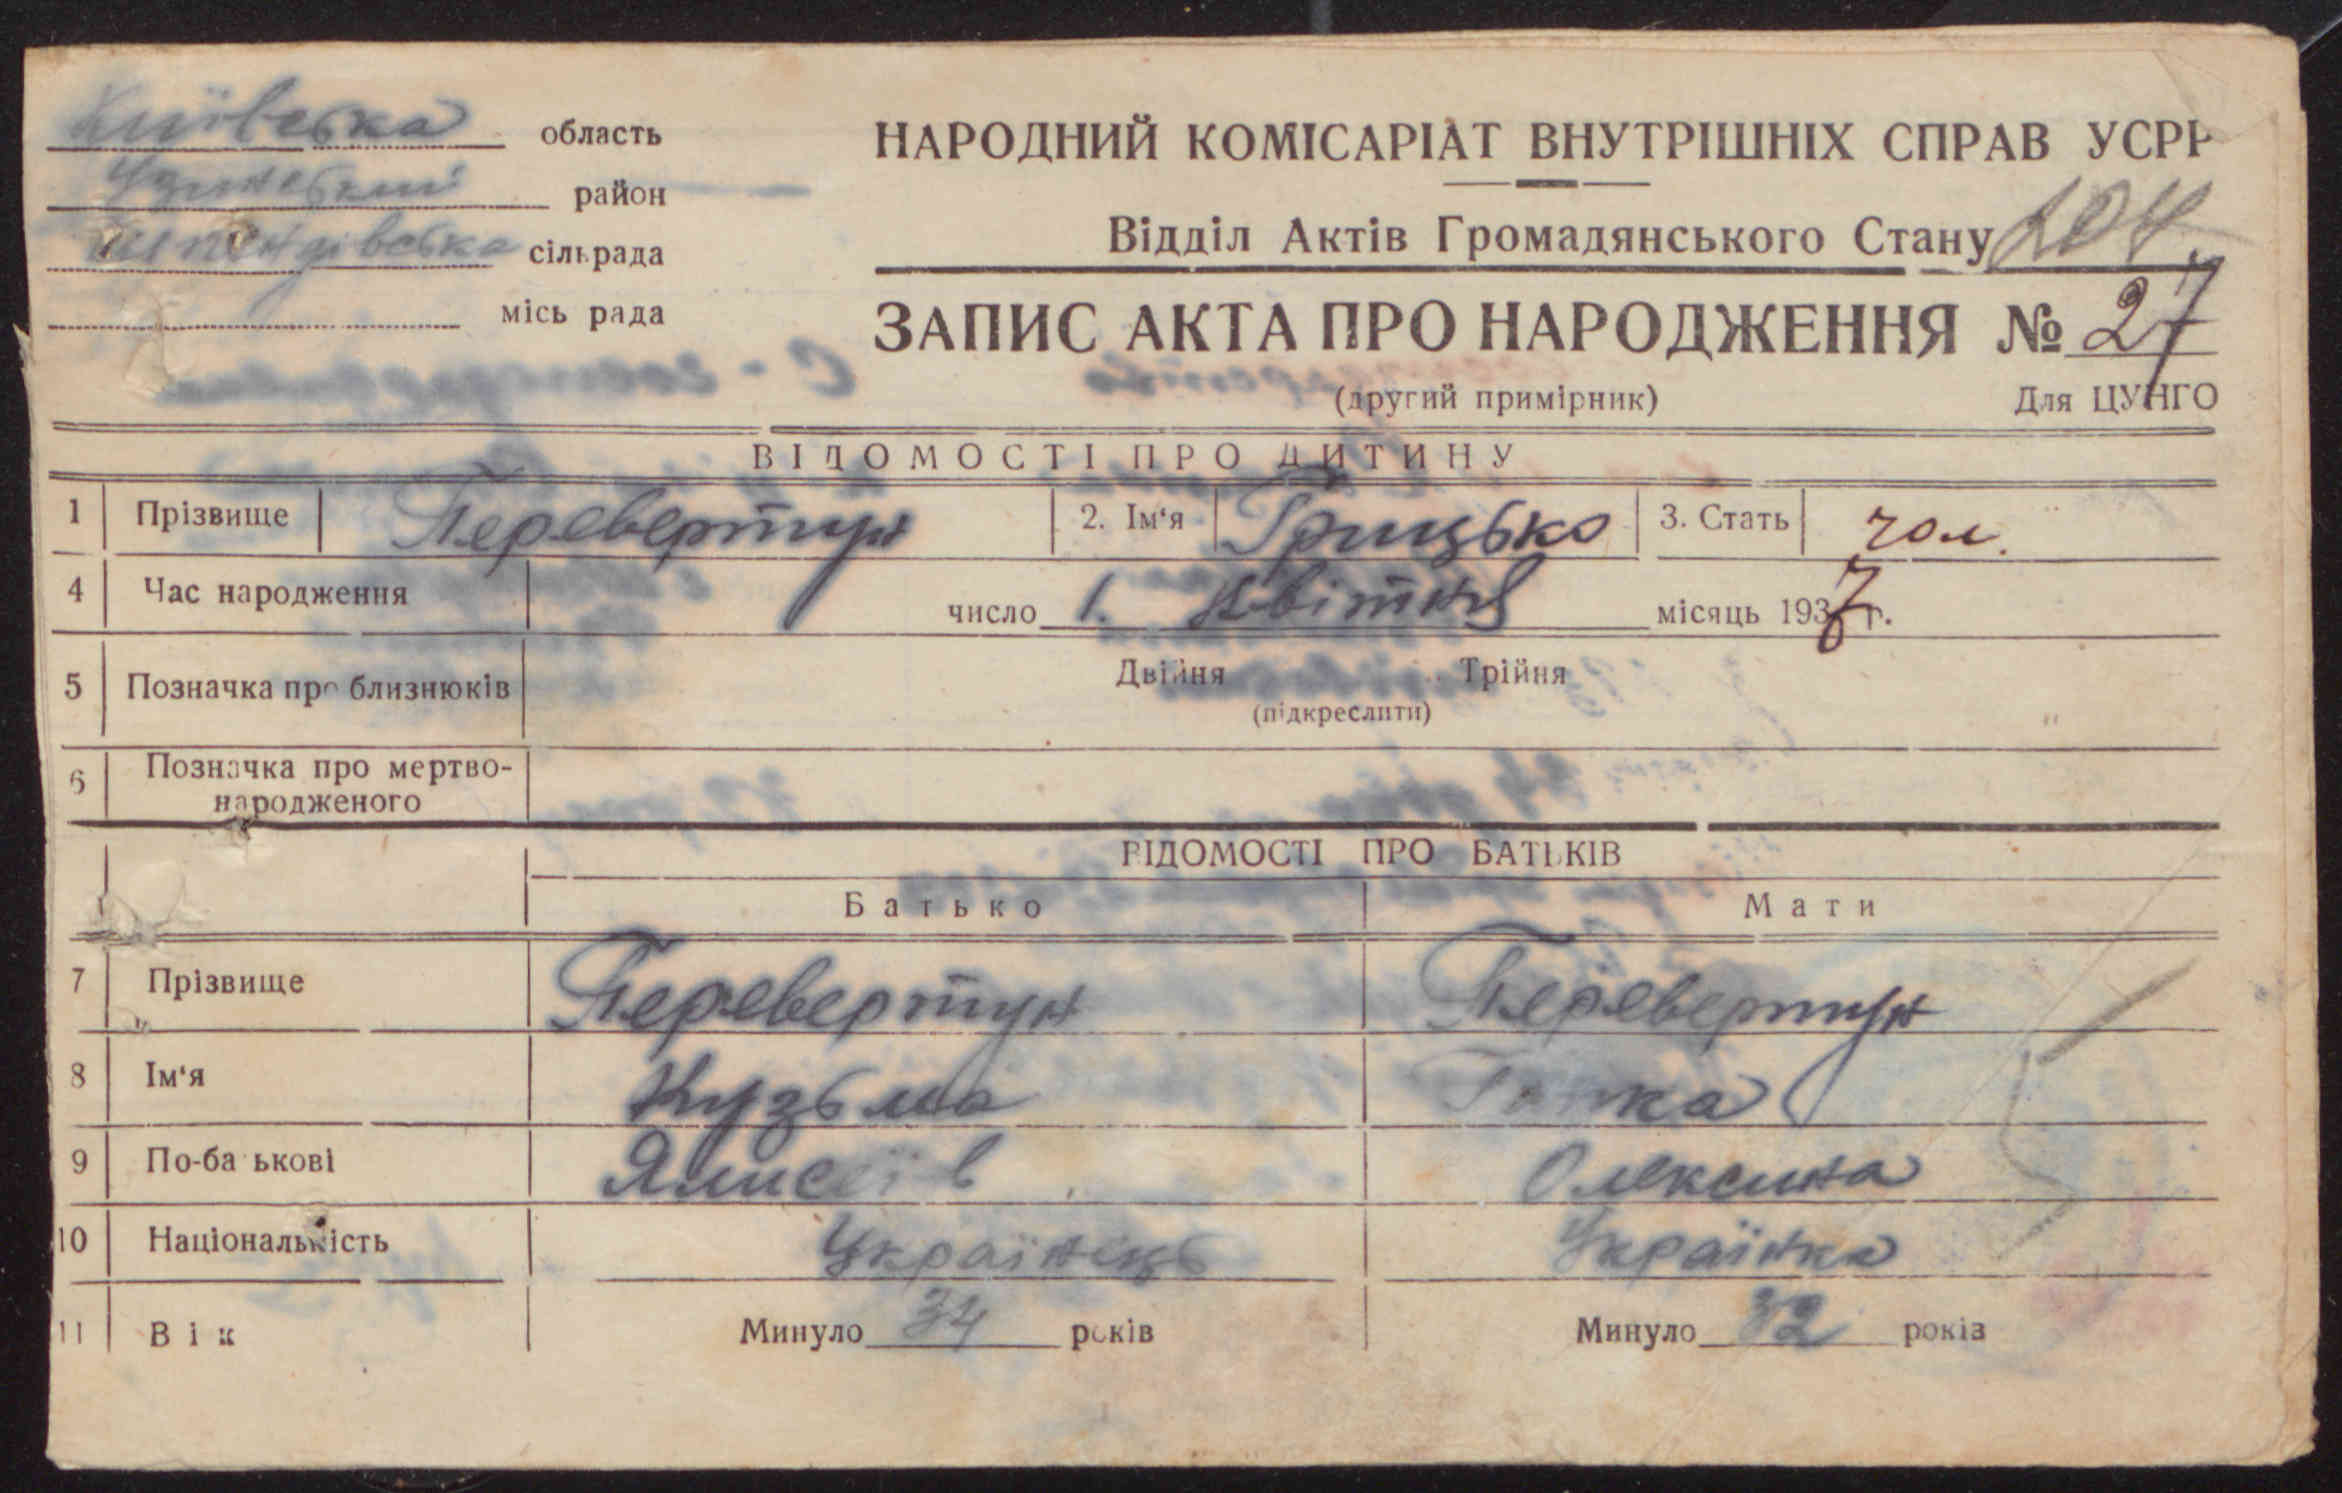 Київська область
Узинський район
Шпендівська сільрада
місь рада
НАРОДНИЙ КОМІСАРІАТ ВНУТРІШНІХ СПРАВ УСРР
Відділ Актів Громадянського Стану 204
ЗАПИС АКТА ПРО НАРОДЖЕННЯ № 27
(другий примірник) Для ЦУНГО
ВІДОМОСТІ ПРО ДИТИНУ
1 Прізвище Перевертун 2. Ім'я Грицько 3. Стать чол.
4 Час народження число 1. Квітня місяць 1937 г.
5 Позначка про близнюків Двійня Трійня
(підкреслити)
6 Позначка про мертво-
народженого
ВІДОМОСТІ ПРО БАТЬКІВ
Батько Мати
7 Прізвище Перевертун Перевертун
8 Ім'я Кузьма
9 По-батькові Олексина
10 Національність Українець Українка
11 Вік Минуло 34 років Минуло 32 років